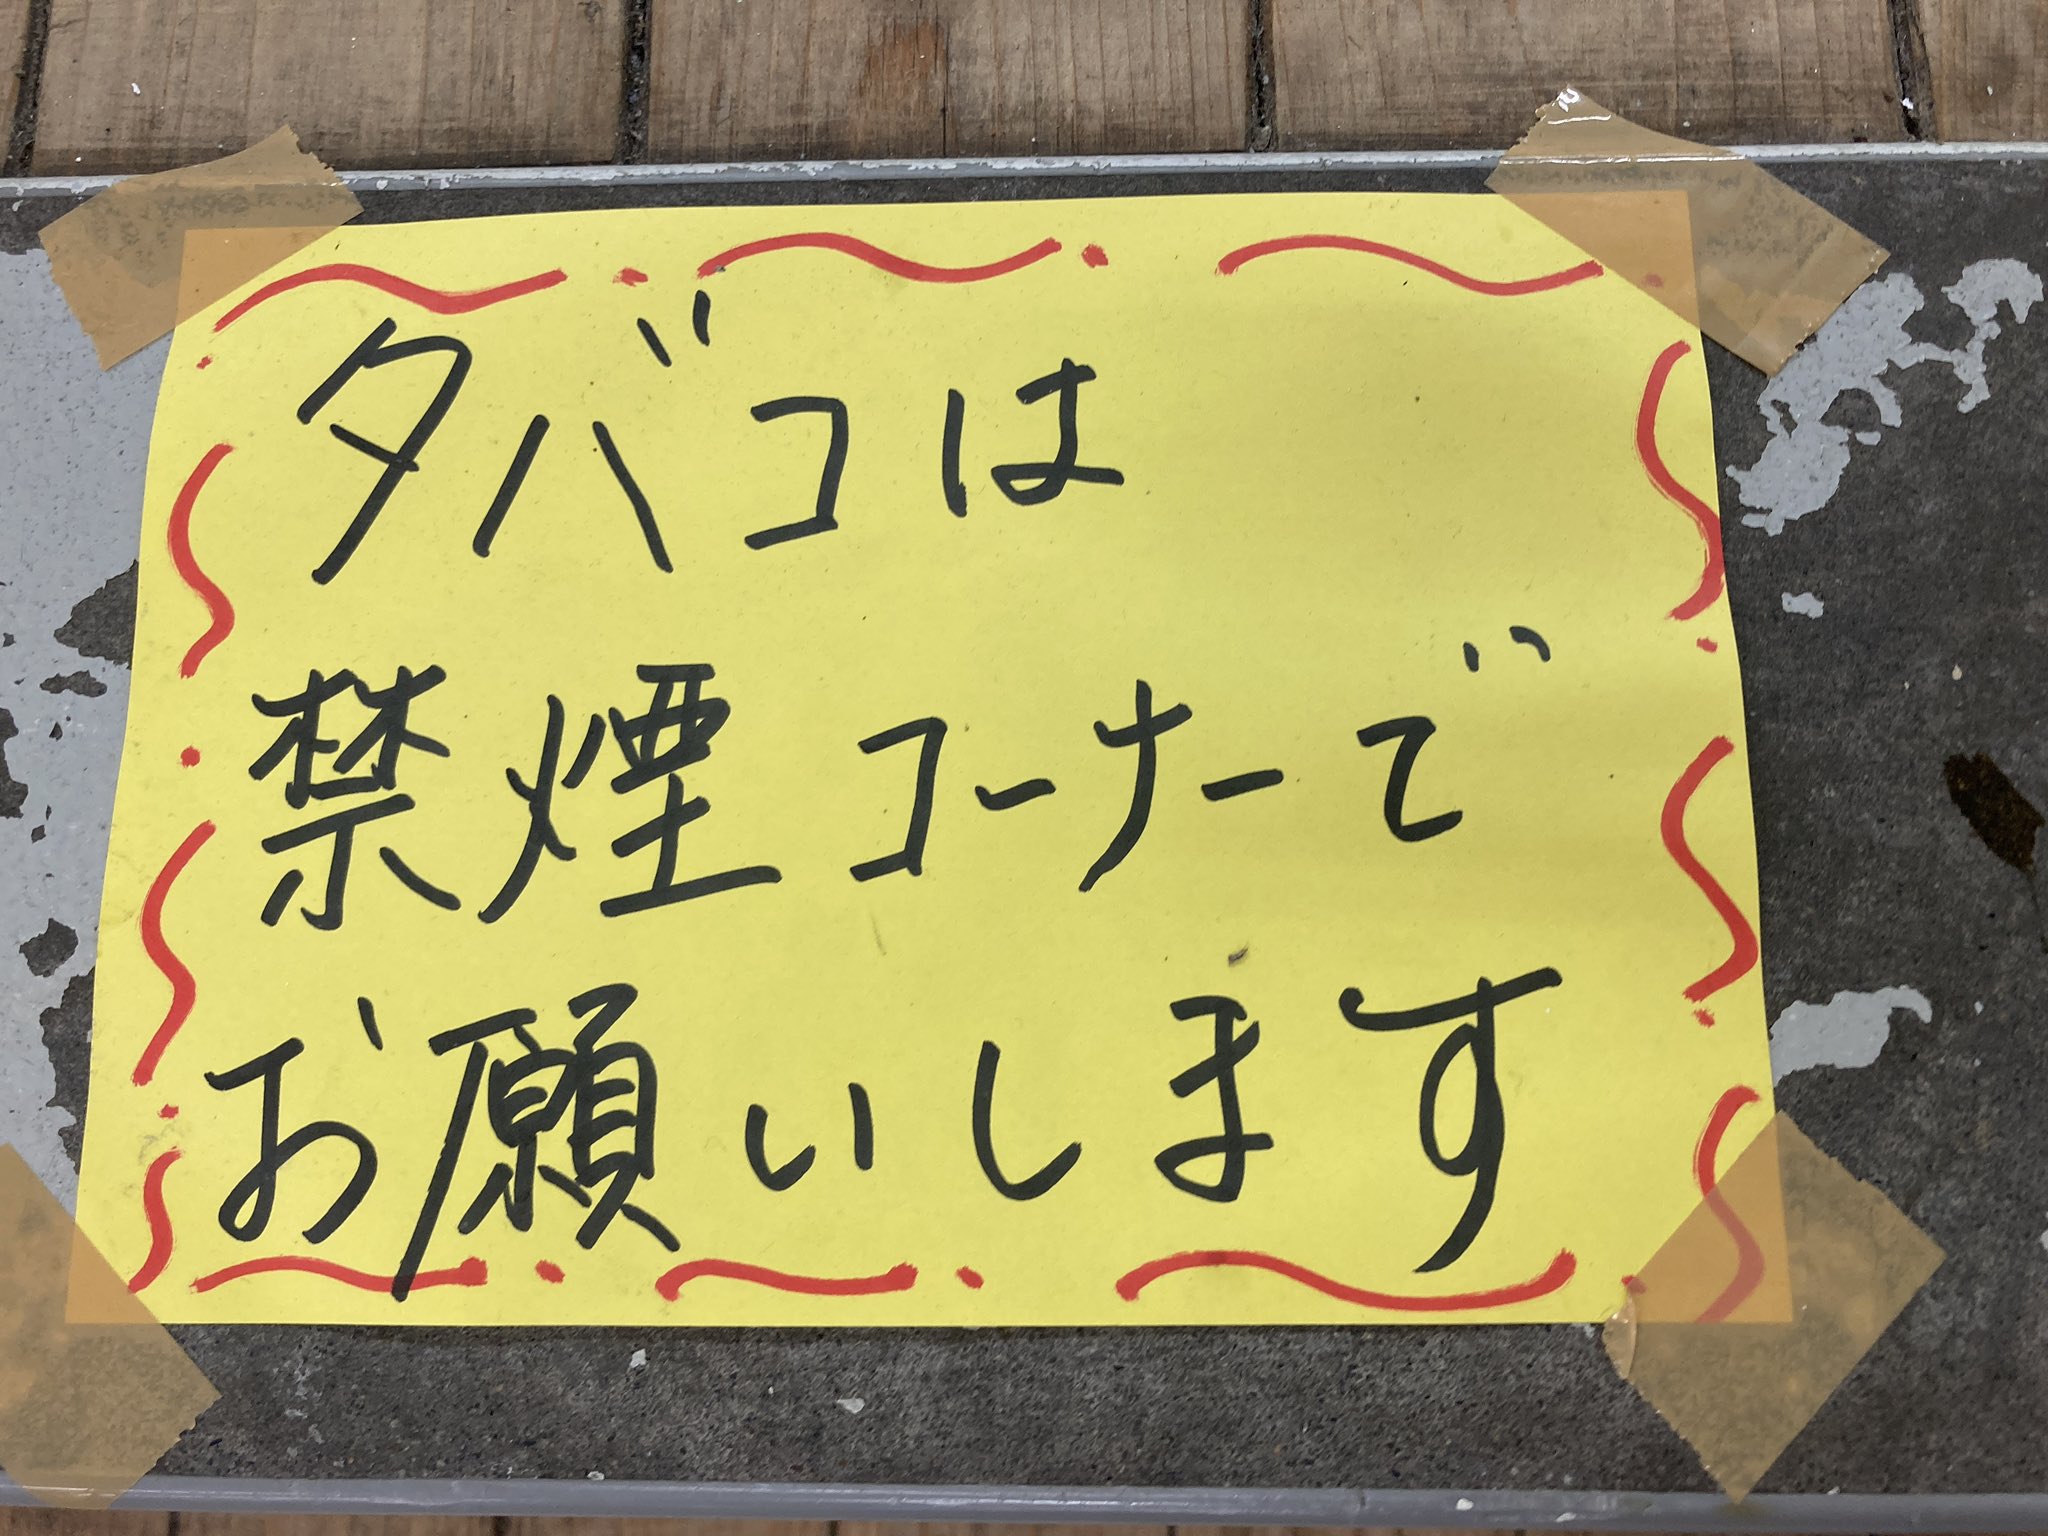 タバコは
禁煙コーナーで
お願いします